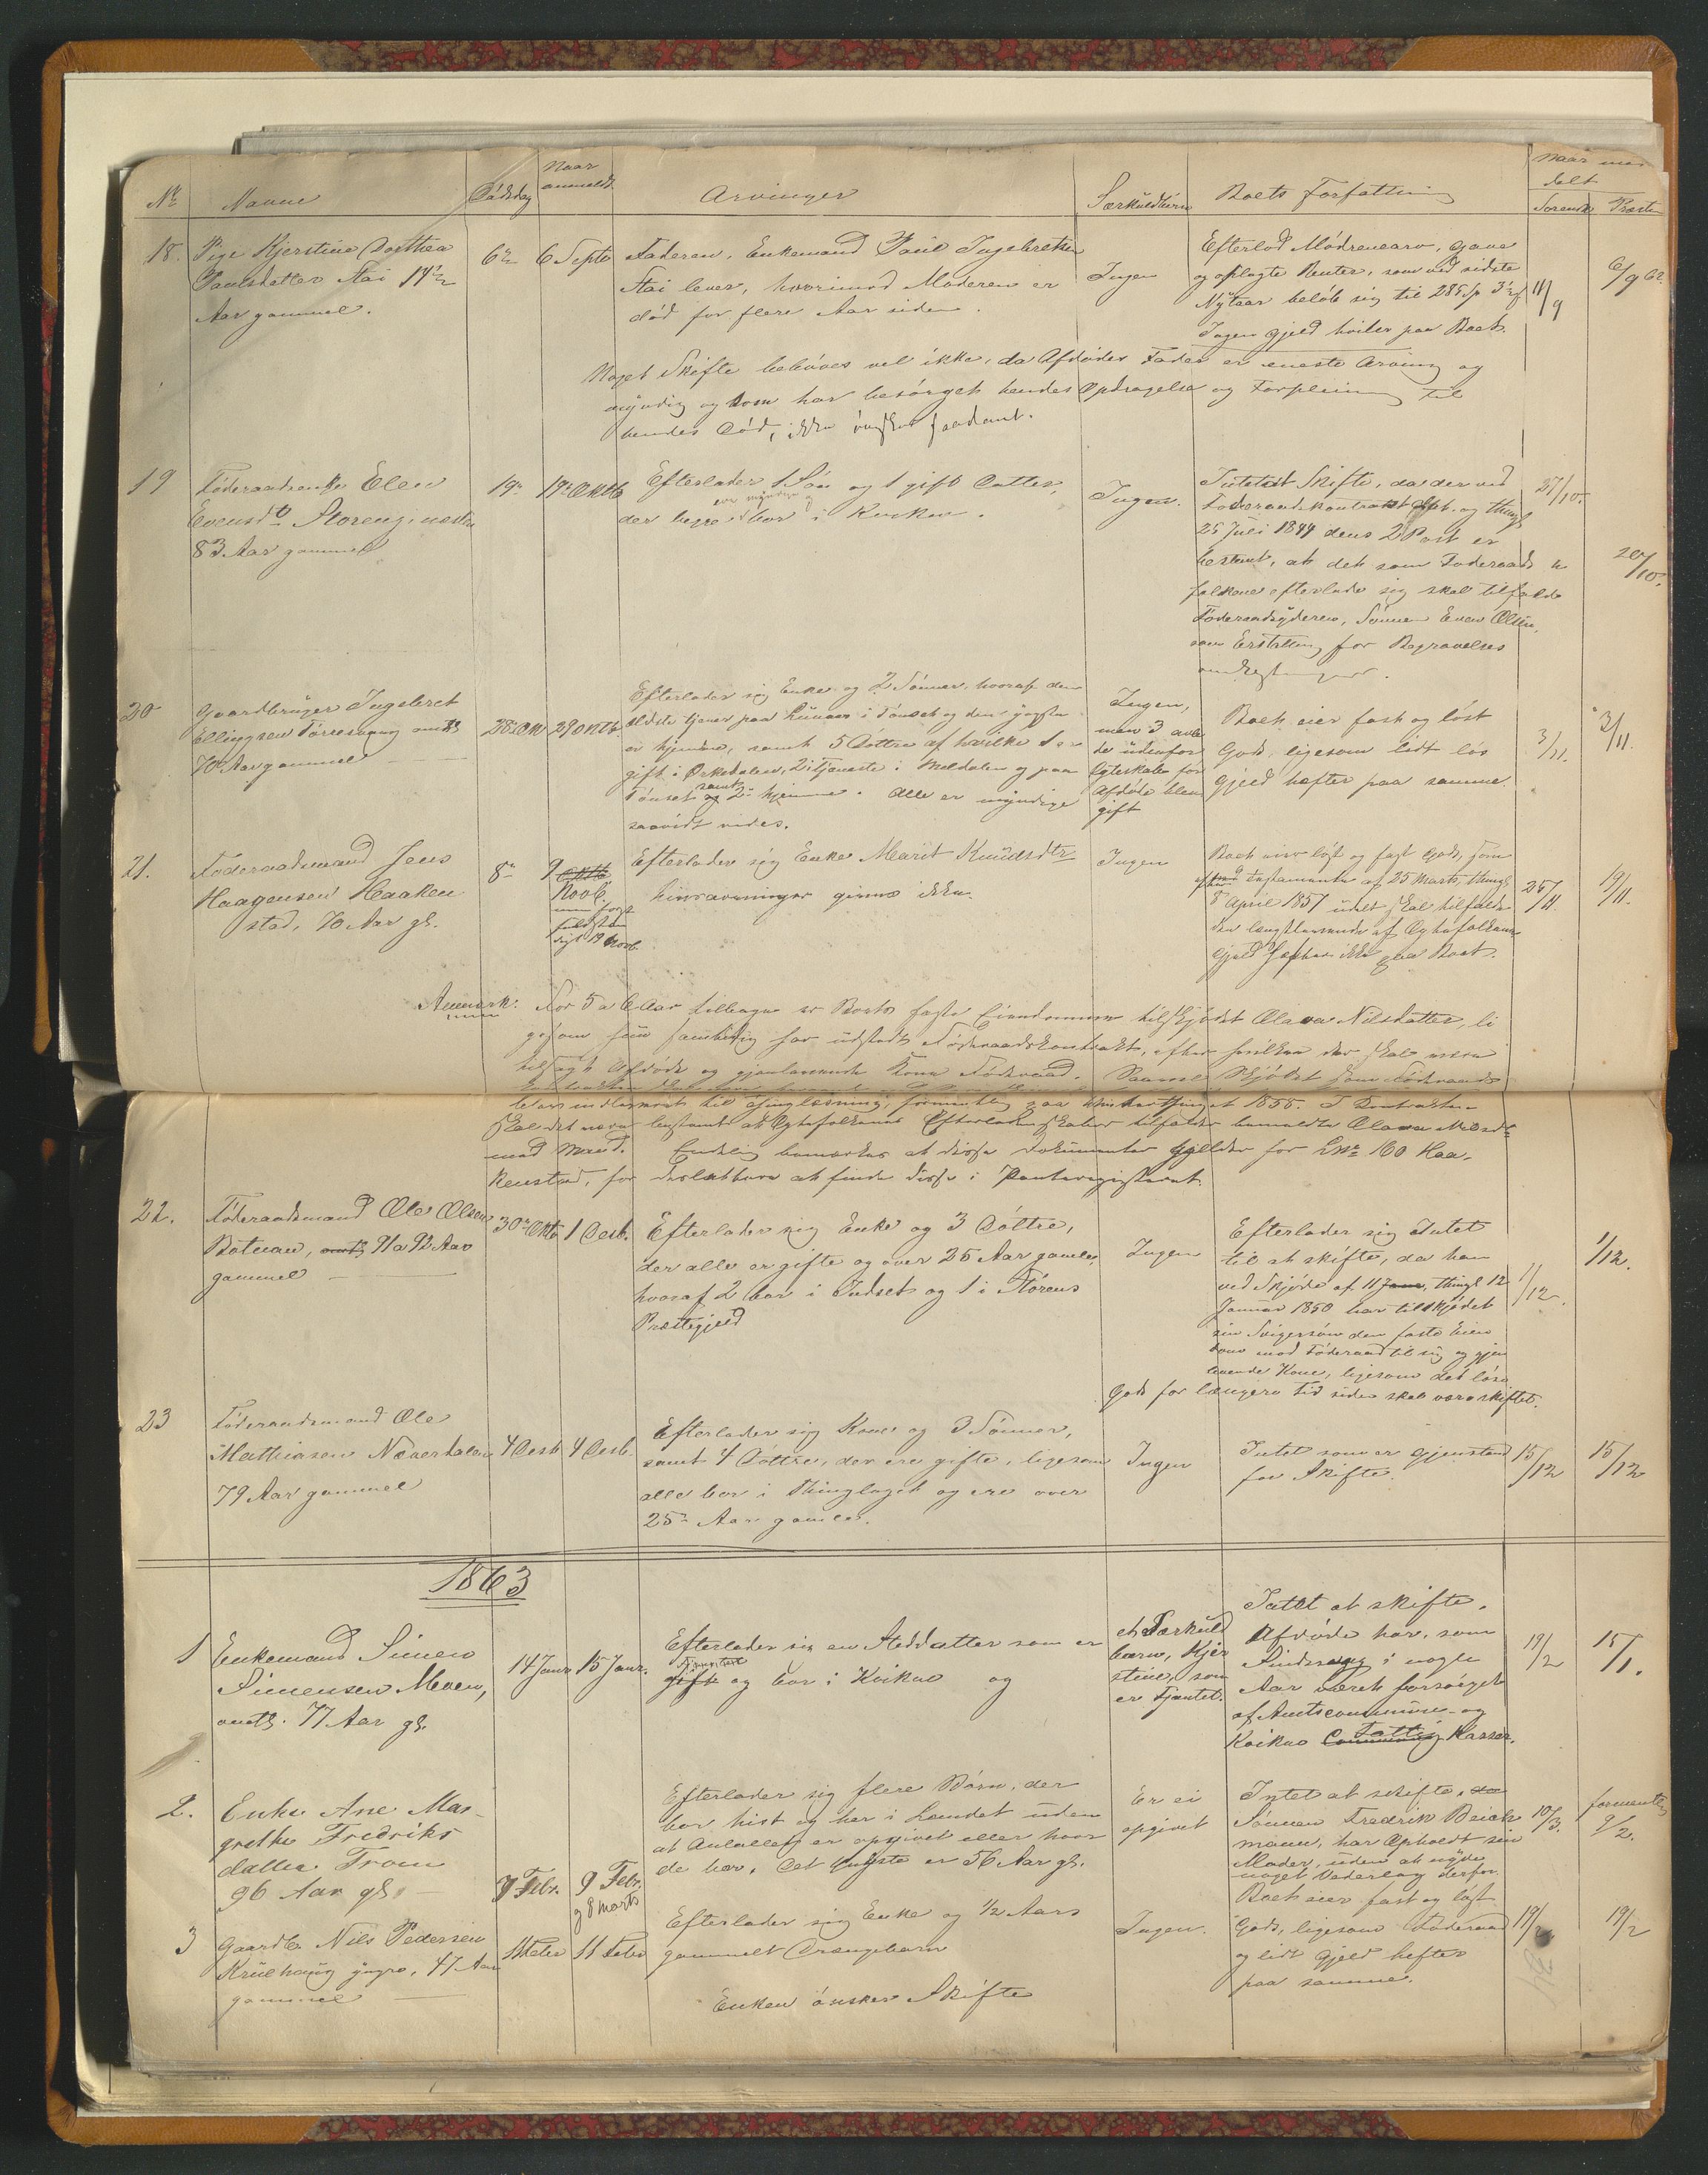 Nr Navne Dødsdag Naar anmeldt Arvinger Særkuldbørn Boets Forfatning Naar meddelt
Sorensk Præsten
18. Pige Kjerstine Dorthea
Paulsdatter Stai 14½
Aar gammel.
6te 6 Septb
Faderen, Enkemand Paul Ingebretsen
Stai lever, hvorimod Moderen er
død for flere Aar siden.
Ingen
Efterlod Mødrenearv, Gave
og oplagte Renter, som ved sidste
Nytaar beløb sig til
Ingen Gjeld hviler paa Boet.
11/9
6/9 62.
Noget Skifte behøves vel ikke, da Afdødes Fader er eneste Arving og
myndig og som har besørget hendes Opdragelse og Forpleining til
hendes Død, ikke ønsker saadant.
19 Føderaadsenke Elen
Evensdtr Storeng, næsten
83 Aar gammel
19de 17de Oktb
Efterlader 1 Søn og 1 gift Datter,
der begge ere myndige og bor i Kvikne.
Ingen.
Intet at Skifte, da der ved
Føderaadskontrakt og thingl.
25 Juli 1844 dens 2 Post er
bestemt, at det som Føderaads
folkene efterlader sig skal tilfalde
Føderaadsyderen, Sønnen Even Olsen,
som Erstatning for Begravelses
omkostninger.
27/10.
20/10.
20 Gaardbruger Ingebret
Ellingsen omtr.
70 Aar gammel
28 Okt 29 Oktb.
Efterlader sig Enke og 2 Sønner, hvoraf den
ældste tjener paa i Tønset og den yngste
er hjemme, samt 5 Døttre af hvilke 1 er
gift i Ørkedalen, 2 i Tjeneste i Meldalen og paa
Tønset samt 2 hjemme. Alle er myndige
saavidt vides.
Ingen,
men 3 avle
de udenfor
Egteskabet før
Afdøde blev
gift
Boet eier fast og løst
Gods, ligesom lidt løs
Gjeld hefter paa samme.
3/11.
3/11.
21. Føderaadsmand Jens
Haagensen Haaken
stad, 70 Aar gl.
8de 9 Oktb
Novb.
men først
fuldstæn
digt 19 Novb.
Efterlader sig Enke Marit Knudsdtr
Livsarvinger gives ikke.
Ingen
Boet eier løst og fast Gods, som
efter Testamente af 25 Marts, thingl.
8 April 1857 udelt skal tilfalde
den længstlevende af Egtefolkene
Gjeld hefter ikke paa Boet.
25/11.
19/11.
Anmerk: For 5 a 6 Aar tilbage er Boets faste Eiendomme tilskjødet Olava Nilsdatter, li
gesom hun samtidig har udstedt Føderaadskontrakt, efter hvilken der skal være
tilsagt Afdøde og gjenlevende Kone Føderaad. Saavel Skjødet som Føderaads
blev indleveret til Thinglæsning, formentlig paa Høstthinget 1856. I Kontrakten
skal det være bestemt at Egtefolkenes Efterladenskaber tilfalder bemeldte Olava Nilsdtr
med Mand. Endelig bemærkes at disse Dokumenter gjelder for Lnr 160 Haa-
kenstad, for derletthere at finde disse i Panteregisteret.
22. Føderaadsmand Ole Olsen
Bøtnan, omtr. 91 a 92 Aar
gammel
30te Oktb 1 Decb.
Efterlader sig Enke og 3 Døttre,
der alle er gifte og over 25 Aar gamle,
hvoraf 2 bor i Indset og 1 i Størens
Præstegjeld
Ingen
Efterlader sig Intet
til at skifte, da han
ved Skjøde af 11 Janr., thingl 12
Januar 1850 har tilskjødet
sin Svigersøn den faste Eien
dom mod Føderaad til sig og gjen
levende Kone, ligesom det løse
Gods for længere Tid siden skal være skiftet.
1/12.
1/12.
23 Føderaadsmand Ole
Mathiasen Næverdalen
79 Aar gammel
4 Decb 4 Decb.
Efterlader sig Kone og 3 Sønner,
samt 4 Døttre, der ere gifte, ligesom
alle bor i Thinglaget og ere over
25 Aar gamle.
Ingen
Intet som er Gjenstand
for Skifte.
15/12
15/12
1863
1 Enkemand Simen
Simensen Moen,
omtr. 77 Aar gl.
14 Janr. 15 Janr.
Efterlader sig en Steddatter som er
gift og bor i Kvikne og
et Særkuld
barn, Kjer
stine, som
er Tjentet.
Intet at skifte.
Afdøde har, som
Sindssyg i nogle
Aar været forsørget
af Amtscommunen og
Kvikne Communes Fattig Kasse.
19/2
15/1.
2. Enke Ane Mar-
grethe Fredriks
datter Trøen
96 Aar gl.
7 Febr. 9 Febr.
og 8 Marts
Efterlader sig flere Børn, der
bor hist og her i Landet uden
at Antallet er opgivet eller hvor
de bor. Det yngste er 56 Aar gl.
Er ei
opgivet
Intet at skifte, da
Sønnen Fredrik Beich
mann, har Opholdt sin
Moder, uden at nyde
noget Vederlag derfor.
10/3.
formentlig
9/2.
3 Gaardbr. Nils Pedersen
Kruehaug yngre, 47 Aar
gammel
11 Febr 11 Febr
Efterlader sig Enke og 1/2 Aars
gammelt Drengebarn
Enken ønsker Skifte
Ingen.
Boet eier fast og løst
Gods, ligesom Føderaad
og lidt Gjeld hefter
paa samme.
19/2
19/2